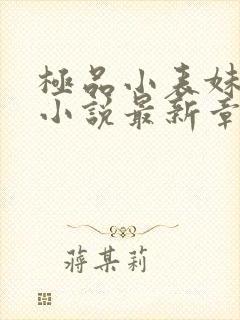 極品小表妹
小說最新章
蔣某莉